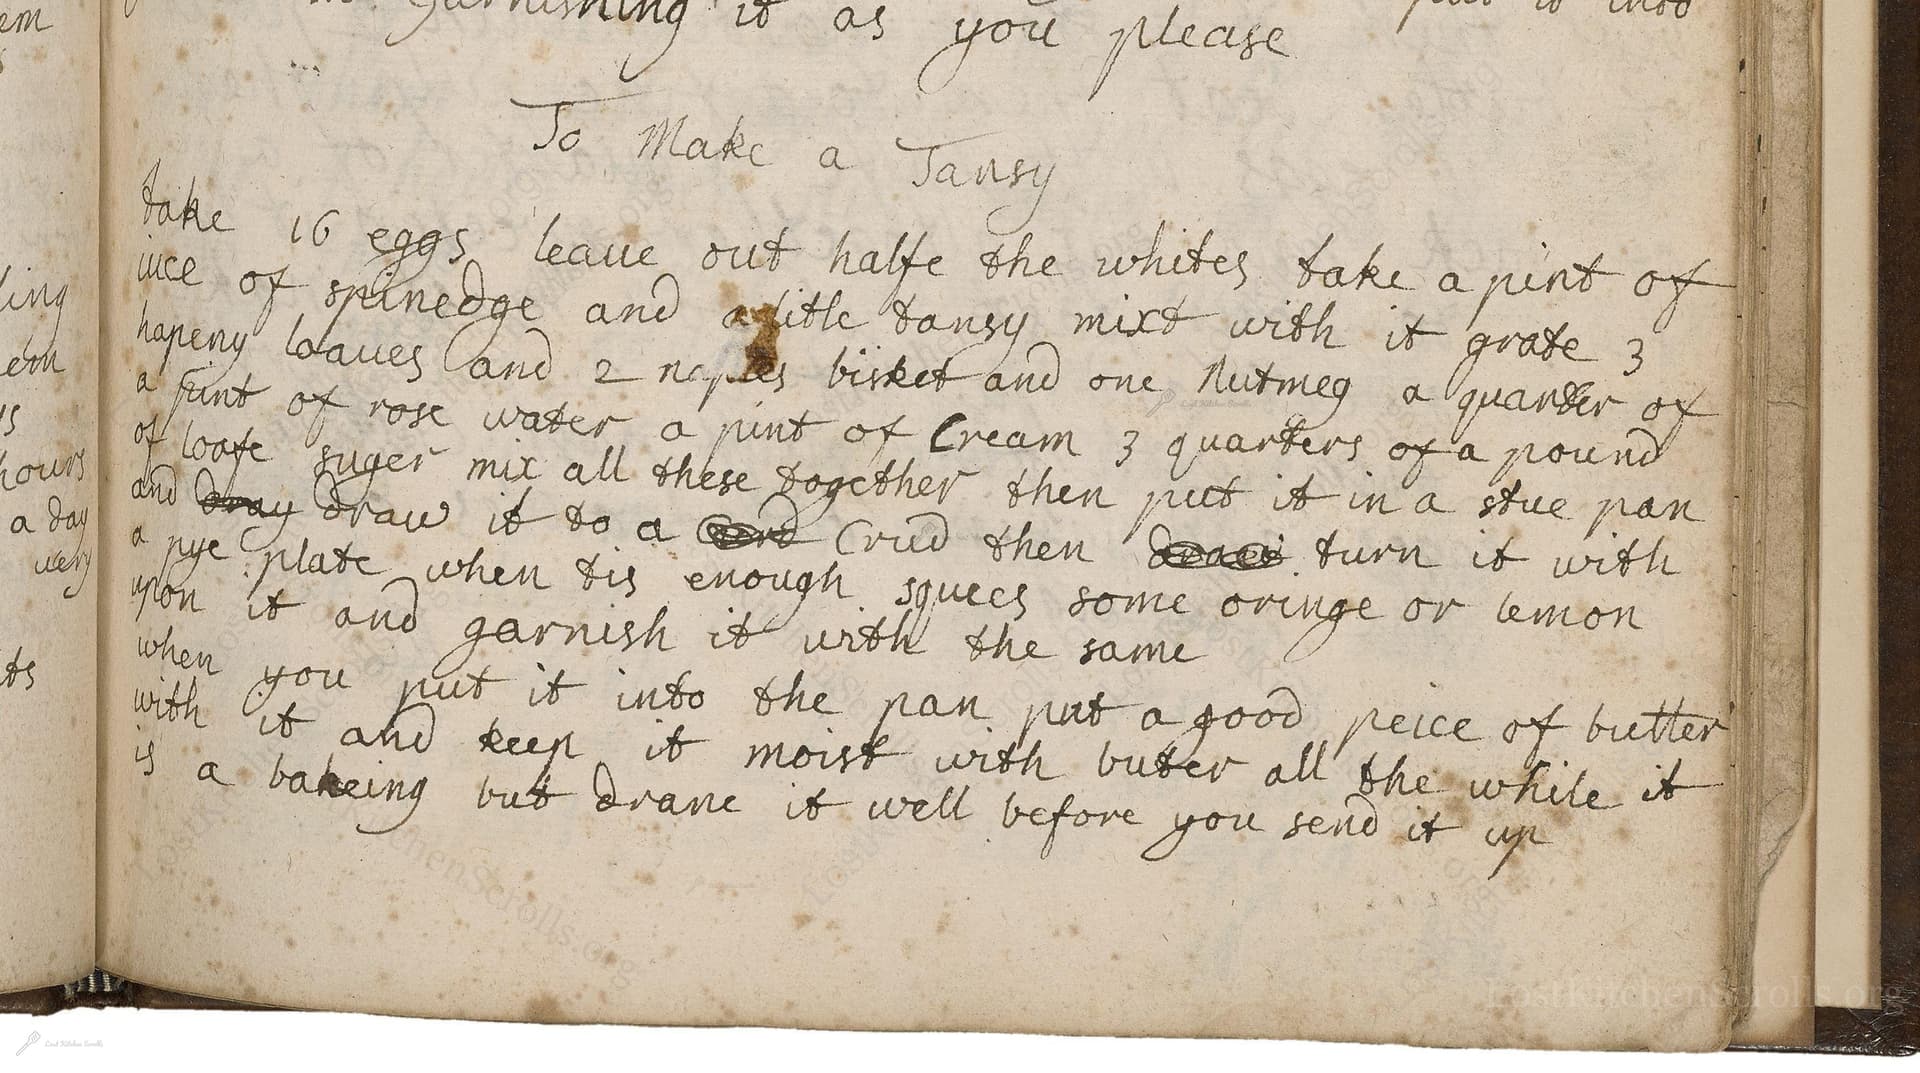 garnishing it as you please put it into
To Make a Tansy
take 16 eggs leaue out halfe the whites take a pint of
iuce of spinedge and a litle tansy mixt with it grate 3
hapeny loaues and 2 naples bisket and one Nutmeg a quarter of
a pint of rose water a pint of Cream 3 quarters of a pound
of loafe suger mix all these together then put it in a stue pan
and dray draw it to a Crud then turn it with
a pye plate when tis enough squees some oringe or lemon
upon it and garnish it with the same
when you put it into the pan put a good peice of butter
with it and keep it moist with buter all the while it
is a bakeing but drane it well before you send it up
em
ling
hours
a day
uery
LostKitchenScrolls.org
Lost Kitchen Scrolls